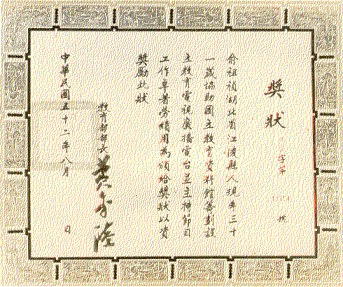 獎狀
字第 號
俞祖禎湖北省江陵縣人現年三十
一歲協助國立教育資料館籌劃設
立教育電視廣播電台並主持節目
工作卓著勞績用為頒給獎狀以資
獎勵此狀
教育部部長 黃季陸
中華民國五十二年八月 日